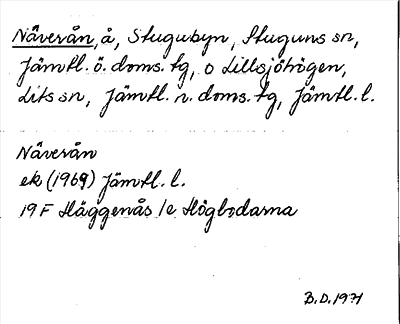 Näverån, å, Stugubyn, Stuguns sn,
Jämtl. ö. doms. tg, o Lillsjöhögen,
Lits sn, Jämtl. n. doms. tg, Jämtl. l.
Näverån
ek (1969) Jämtl. l.
19 F Häggenås /e Högbodarna
B.D. 1971